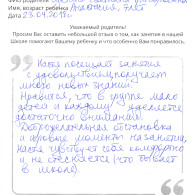 Имя, возраст ребенка Анастасия, 7 лет
Дата 23.04.2018г.
Уважаемый родитель!
Просим Вас оставить небольшой отзыв о том, как занятия в нашей
Школе помогают Вашему ребенку и что особенно Вам понравилось.
Настя посещает занятия
с удовольствием, получает
много новых знаний.
Нравится, что в группе мало
детей и каждому уделяется
достаточно внимания.
Доброжелательная обстановка
и игровые моменты на занятиях,
Настя чувствует себя комфортно
и не стесняется (что бывает
в школе).